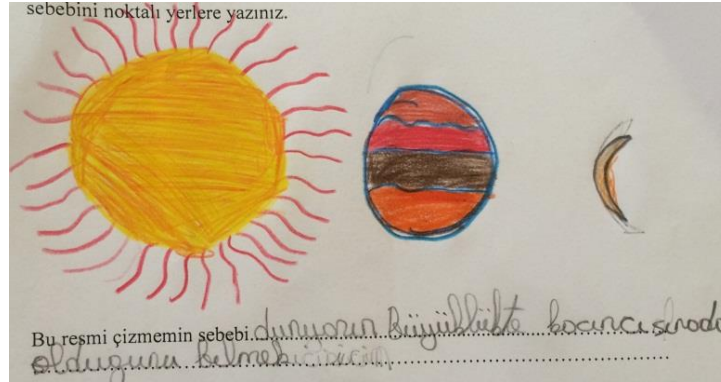 sebebini noktalı yerlere yazınız.
Bu resmi çizmemin sebebi dunyanın büyüklükte kocıncı sırada
olduğunu bilmek için